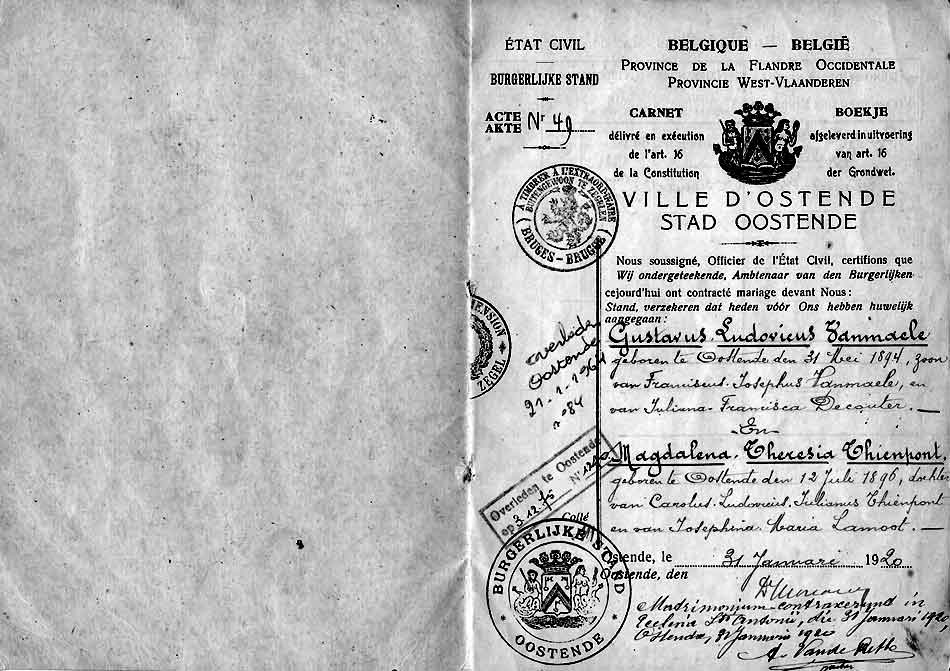 ÉTAT CIVIL
BURGERLIJKE STAND
ACTE
AKTE Nr 49
BELGIQUE — BELGIË
PROVINCE DE LA FLANDRE OCCIDENTALE
PROVINCIE WEST-VLAANDEREN
CARNET
délivré en exécution
de l'art. 16
de la Constitution
BOEKJE
afgeleverd in uitvoering
van art. 16
der Grondwet.
VILLE D'OSTENDE
STAD OOSTENDE
A TIMBRER A L'EXTRAORDINAIRE
BUITENGEWOON TE ZEGELEN
BRUGES - BRUGGE
Nous soussigné, Officier de l'État Civil, certifions que
Wij ondergeteekende, Ambtenaar van den Burgerlijken
cejourd'hui ont contracté mariage devant Nous :
Stand, verzekeren dat heden vóór Ons hebben huwelijk
aangegaan :
Gustavus Ludovicus Vanmaele
geboren te Oostende den 31 Mei 1894, zoon
van Franciscus Josephus Vanmaele, en
van Juliana Francisca Decouter. —
En
Magdalena Theresia Thienpont,
geboren te Oostende den 12 Juli 1896, dochter
van Carolus Ludovicus Julianus Thienpont
en van Josephina Maria Lamoot. —
ZEGEL
overleden
Oostende
21-1-196
n° 84
Overleden te Oostende
op 3.12.
N°
Collé
Ostende, le
Oostende, den
31 Januari 1920
BURGERLIJKE STAND
OOSTENDE
Matrimonium contraxerunt in
Ecclesia Sti Antonii, die 31 Januari 1920,
Ostende, 31 Januarii 1920